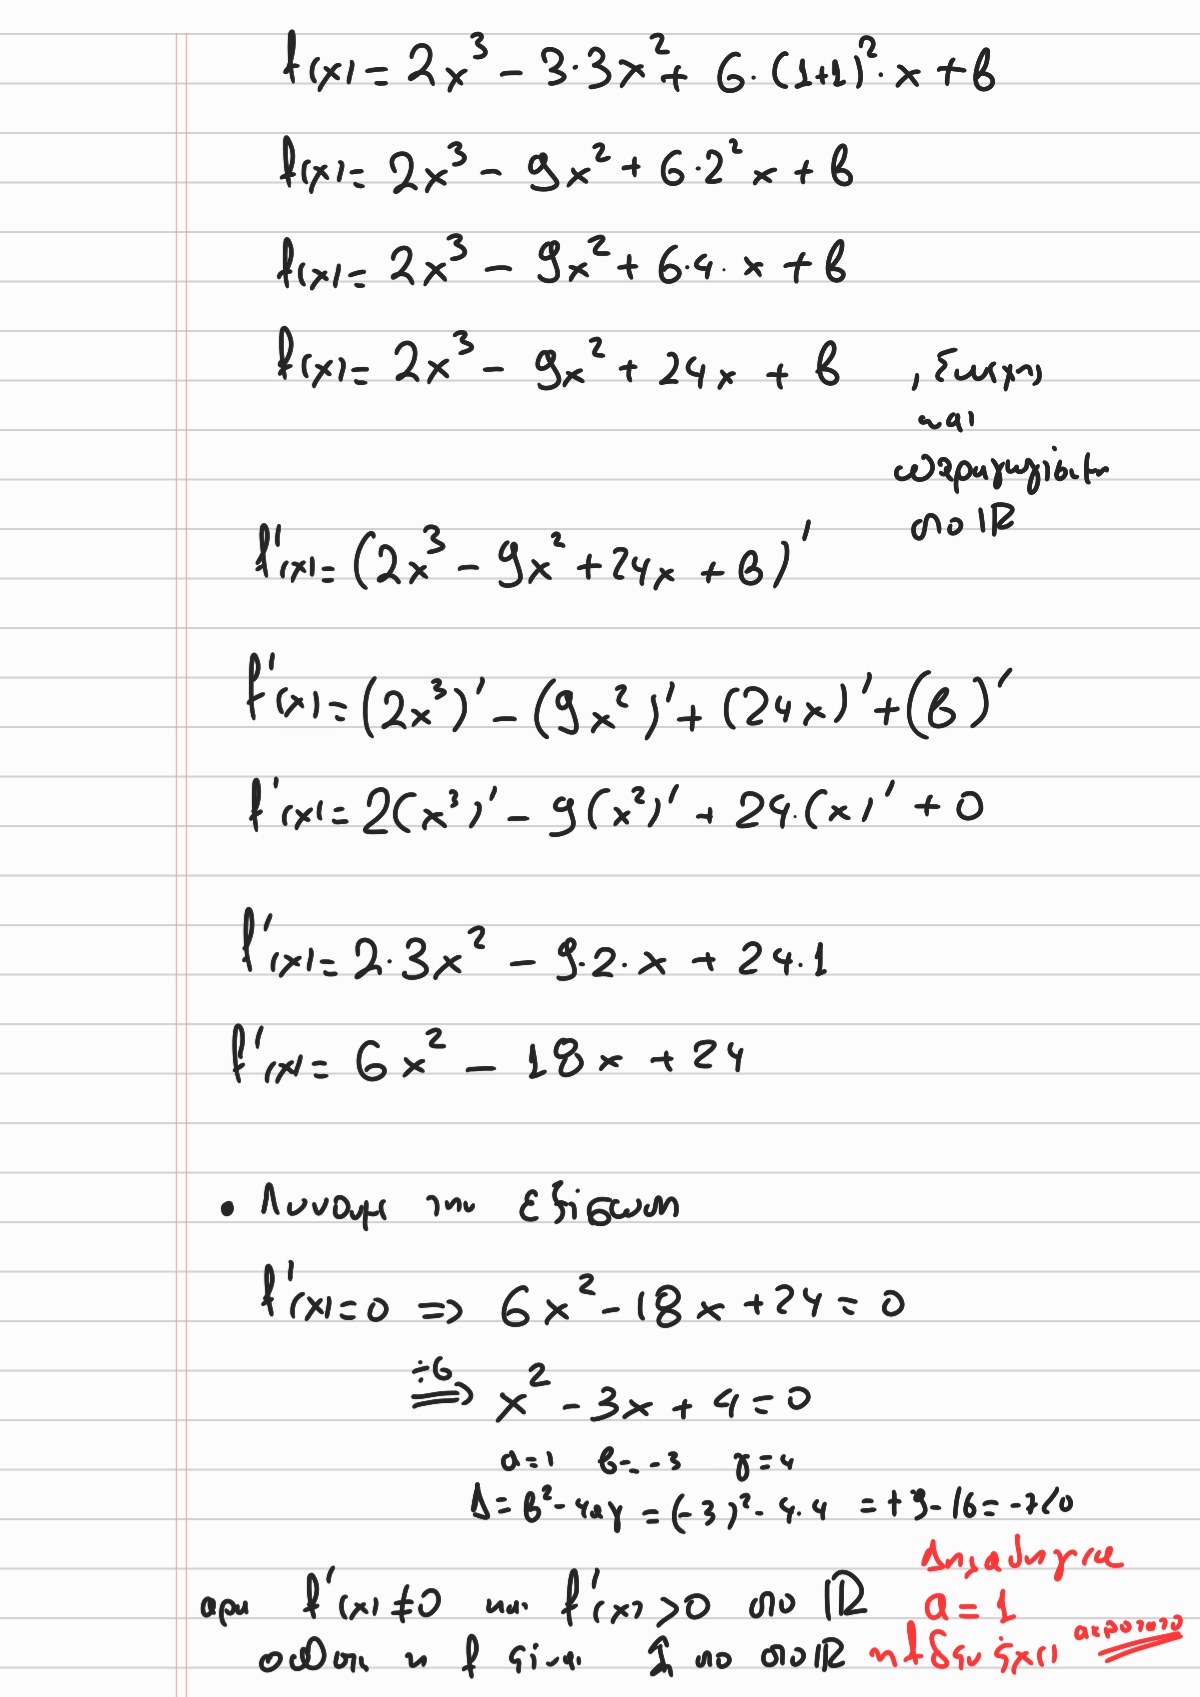 f(x) = 2x³ - 3·3x² + 6·(1+1)²·x + β
f(x) = 2x³ - 9x² + 6·2²x + β
f(x) = 2x³ - 9x² + 6·4·x + β
f(x) = 2x³ - 9x² + 24x + β , συνεχή
και
παραγωγίσιμη
στο ℝ
f'(x) = (2x³ - 9x² + 24x + β)'
f'(x) = (2x³)' - (9x²)' + (24x)' + (β)'
f'(x) = 2(x³)' - 9(x²)' + 24·(x)' + 0
f'(x) = 2·3x² - 9·2·x + 24·1
f'(x) = 6x² - 18x + 24
• Λύνουμε την εξίσωση
f'(x) = 0 => 6x² - 18x + 24 = 0
÷6 => x² - 3x + 4 = 0
α=1 β=-3 γ=4
Δ = β² - 4αγ = (-3)² - 4·4 = +9 - 16 = -7<0
άρα f'(x) ≠ 0 και f'(x) > 0 στο ℝ
οπότε η f είναι ↑ στο ℝ
Δηλαδή για
α = 1
η f δεν έχει ακρότατο